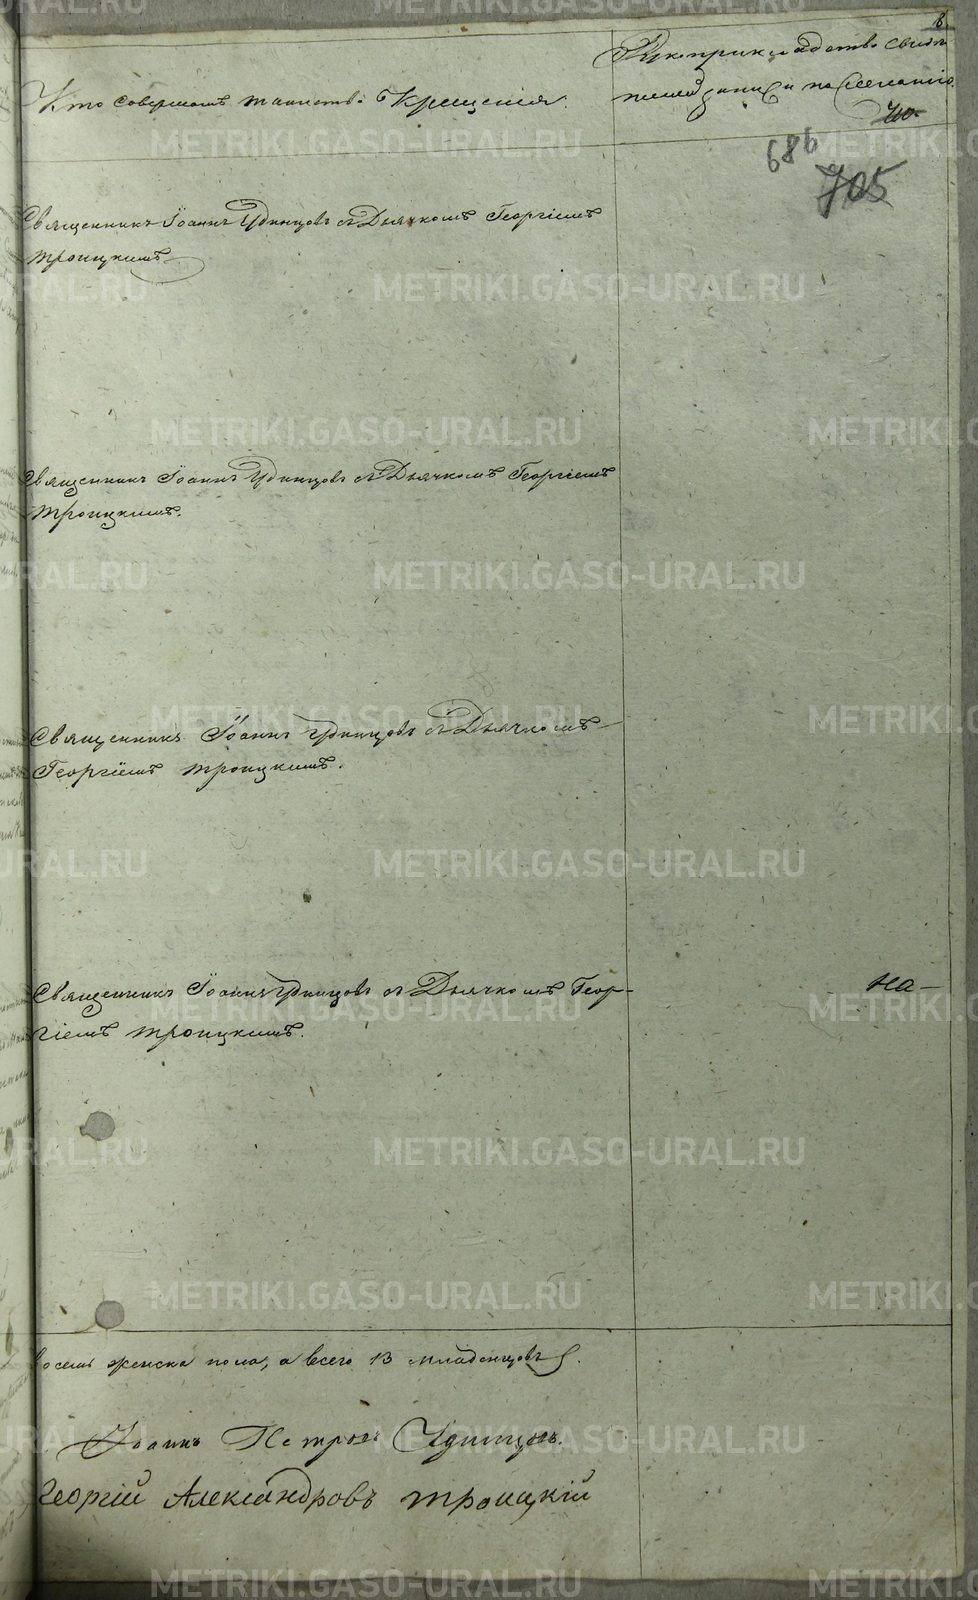 8.
Кто совершалъ таинство Крещенія.
Рукоприкладство свидѣ-
телей записи по желанію.
686
705
Священникъ Іоаннъ Удинцовъ съ Дьячкомъ Георгіемъ
Троицкимъ.
Священникъ Іоаннъ Удинцовъ съ Дьячкомъ Георгіемъ
Троицкимъ.
Священникъ Іоаннъ Удинцовъ съ Дьячкомъ
Георгіемъ Троицкимъ.
Священникъ Іоаннъ Удинцовъ съ Дьячкомъ Геор-
гіемъ Троицкимъ.
На-
восемь женска пола, а всего 13 младенцовъ.
Іоаннъ Петровъ Удинцовъ.
Георгій Александровъ Троицкій
METRIKI.GASO-URAL.RU